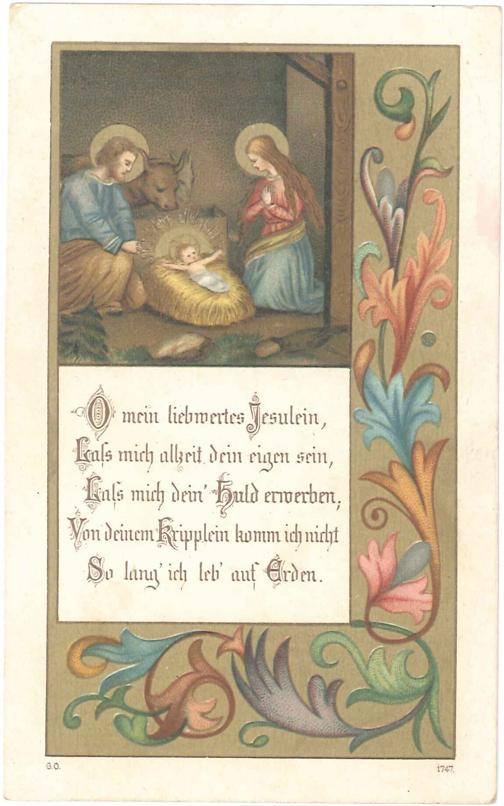 O mein liebwertes Jesulein,
Laſs mich allzeit dein eigen sein,
Laſs mich dein' Huld erwerben;
Von deinem Kripplein komm ich nicht
So lang' ich leb' auf Erden.
G.O.
1747.